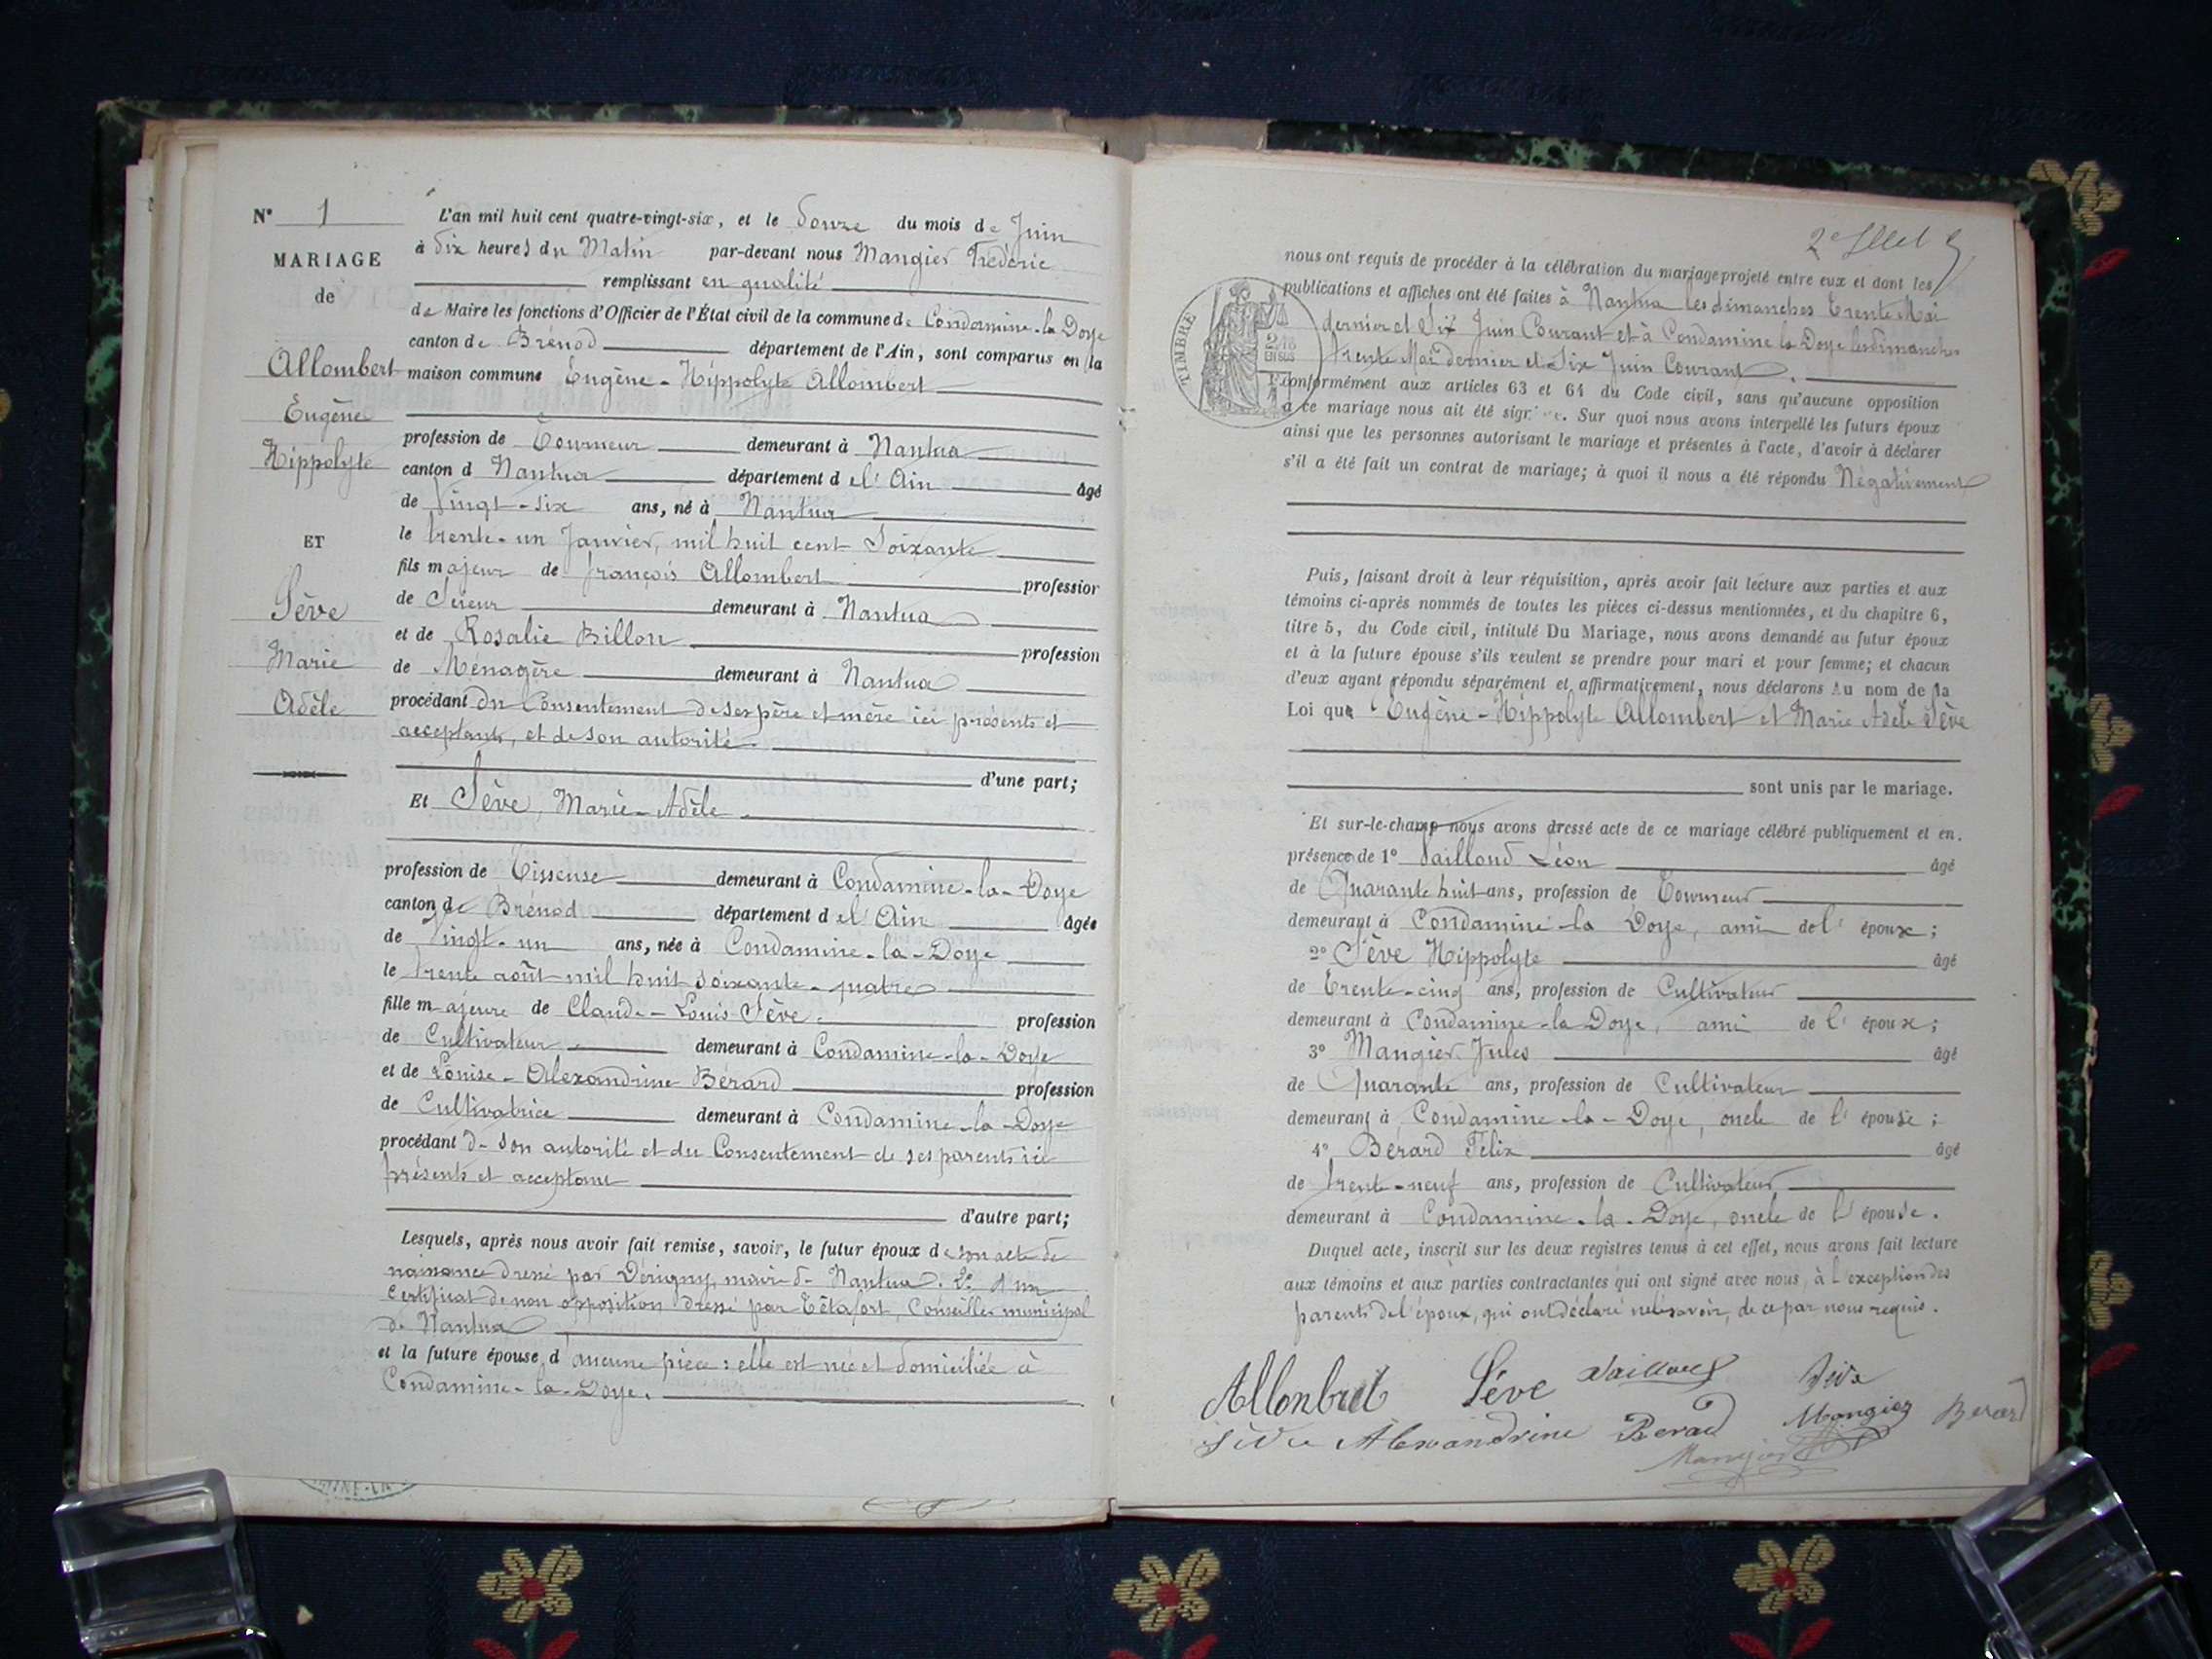 N° 1
MARIAGE
de
Allombert
Eugène
Hippolyte
ET
Sève
Marie
Adèle
L'an mil huit cent quatre-vingt-six, et le Douze du mois de Juin
à Dix heures du Matin par-devant nous Mangier Frédéric
remplissant en qualité
de Maire les fonctions d'Officier de l'État civil de la commune de Condamine-la Doye
canton de Brénod département de l'Ain, sont comparus en la
maison commune Eugène-Hippolyte Allombert
profession de Tourneur demeurant à Nantua
canton d Nantua département d el' Ain âgé
de Vingt-six ans, né à Nantua
le trente-un Janvier, mil huit cent Soixante
fils majeur de François Allombert profession
de Scieur demeurant à Nantua
et de Rosalie Billon profession
de Ménagère demeurant à Nantua
procédant du Consentement de ses père et mère ici présents et
acceptants, et de son autorité.
d'une part;
Et Sève, Marie-Adèle
profession de Tisseuse demeurant à Condamine-la-Doye
canton de Brénod département d el' Ain âgée
de Vingt-un ans, née à Condamine-la-Doye
le trente août mil huit soixante-quatre
fille majeure de Claude-Louis Sève profession
de Cultivateur demeurant à Condamine-la-Doye
et de Louise-Alexandrine Bérard profession
de Cultivatrice demeurant à Condamine-la-Doye
procédant de son autorité et du Consentement de ses parents ici
présents et acceptant
d'autre part;
Lesquels, après nous avoir fait remise, savoir, le futur époux de son acte de
naissance dressé par Dérigny, maire de Nantua. 2° d'un
Certificat de non opposition dressé par Têtafort, Conseiller municipal
de Nantua
et la future épouse d'aucune pièce : elle est née et domiciliée à
Condamine-la-Doye.
nous ont requis de procéder à la célébration du mariage projeté entre eux et dont les
publications et affiches ont été faites à Nantua les dimanches trente Mai
dernier et Six Juin Courant et à Condamine la Doye les dimanches
trente Mai dernier et Six Juin Courant.
TIMBRE
EN SUS
conformément aux articles 63 et 64 du Code civil, sans qu'aucune opposition
à ce mariage nous ait été . Sur quoi nous avons interpellé les futurs époux
ainsi que les personnes autorisant le mariage et présentes à l'acte, d'avoir à déclarer
s'il a été fait un contrat de mariage; à quoi il nous a été répondu Négativement
Puis, faisant droit à leur réquisition, après avoir fait lecture aux parties et aux
témoins ci-après nommés de toutes les pièces ci-dessus mentionnées, et du chapitre 6,
titre 5, du Code civil, intitulé Du Mariage, nous avons demandé au futur époux
et à la future épouse s'ils veulent se prendre pour mari et pour femme; et chacun
d'eux ayant répondu séparément et affirmativement, nous déclarons au nom de la
Loi que Eugène-Hippolyte Allombert et Marie Adèle Sève
sont unis par le mariage.
Et sur-le-champ nous avons dressé acte de ce mariage célébré publiquement et en
présence de 1° Vailloud Léon âgé
de Quarante huit ans, profession de Tourneur
demeurant à Condamine-la Doye, ami de l' époux;
2° Sève Hippolyte âgé
de Trente-cinq ans, profession de Cultivateur
demeurant à Condamine-la Doye, ami de l' époux;
3° Mangier Jules âgé
de Quarante ans, profession de Cultivateur
demeurant à Condamine-la-Doye, oncle de l' épouse;
4° Bérard Félix âgé
de trente-neuf ans, profession de Cultivateur
demeurant à Condamine-la-Doye, oncle de l' épouse.
Duquel acte, inscrit sur les deux registres tenus à cet effet, nous avons fait lecture
aux témoins et aux parties contractantes qui ont signé avec nous, à l'exception des
parents de l'époux, qui ont déclaré ne le savoir, de ce par nous requis.
Allonbert Sève Vailloud Sève
Sève Alexandrine Berard Mangier Berard
Mangier